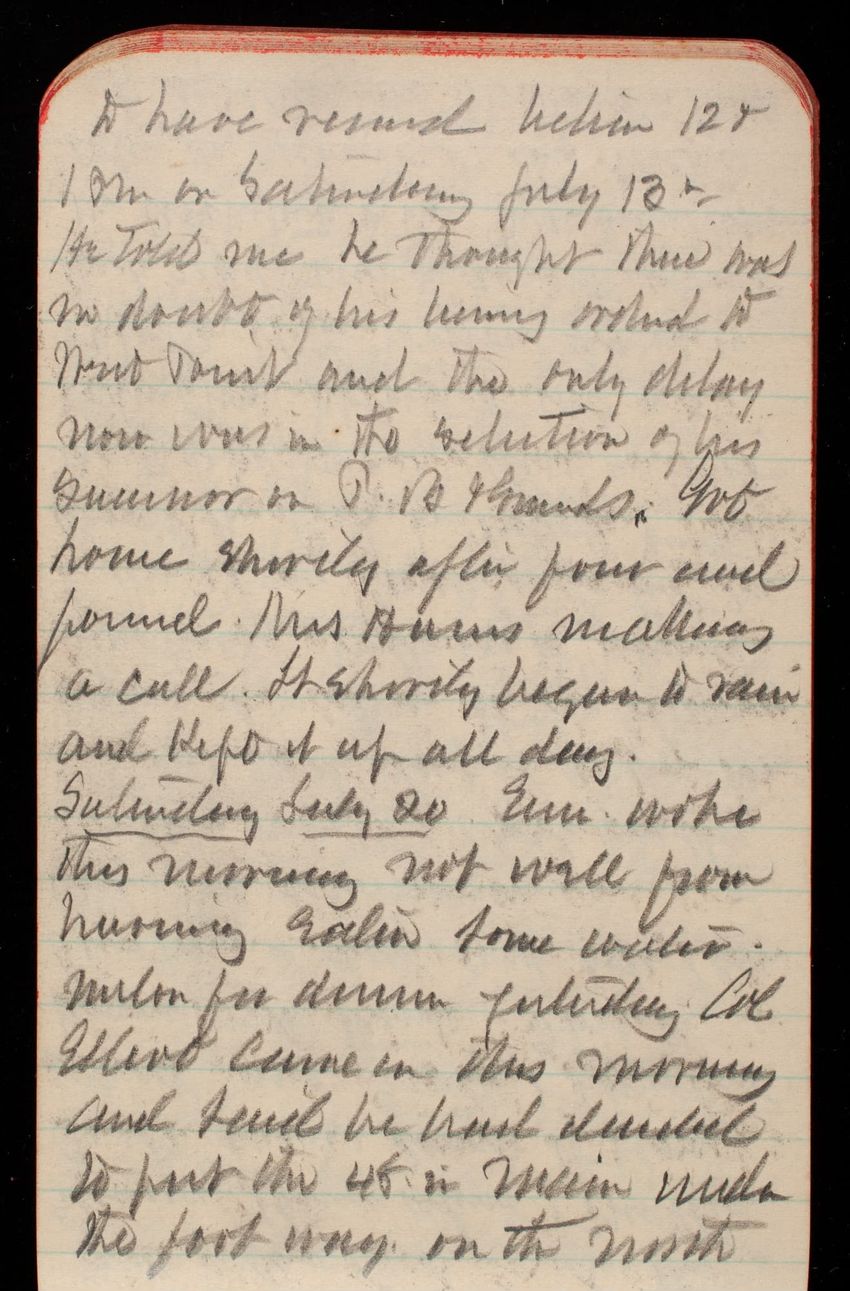 to have resumed between 12 &
1 PM on Saturday July 13th
He Told me he thought there was
no doubt of his being ordered to
West Point and the only delay
now was in the selection of his
successor on P. B Grounds. Got
home shortly after four and
found Mrs. Harris making
a call. It shortly began to rain
and Kept it up all day.
Saturday July 20 Em. woke
this morning not well from
having Eaten some water-
melon for dinner yesterday. Col
Elliott came in this morning
and said he had decided
to put the 48 in Main under
the foot way. on the north